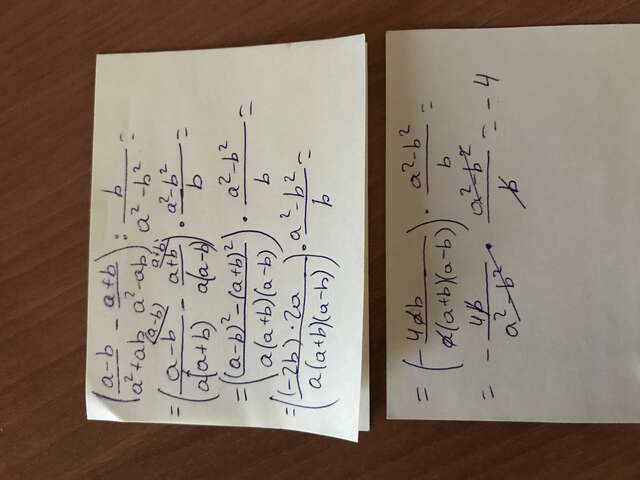 (a-b/a²+ab - a+b/a²-ab) : b/a²-b² =
= (a-b/a(a+b) (a-b) - a+b/a(a-b) a+b) · a²-b²/b =
= ((a-b)²-(a+b)²/a(a+b)(a-b)) · a²-b²/b =
= ((-2b)·2a/a(a+b)(a-b)) · a²-b²/b =
= (-4ab/a(a+b)(a-b)) · a²-b²/b =
= -4b/a²-b² · a²-b²/b = -4